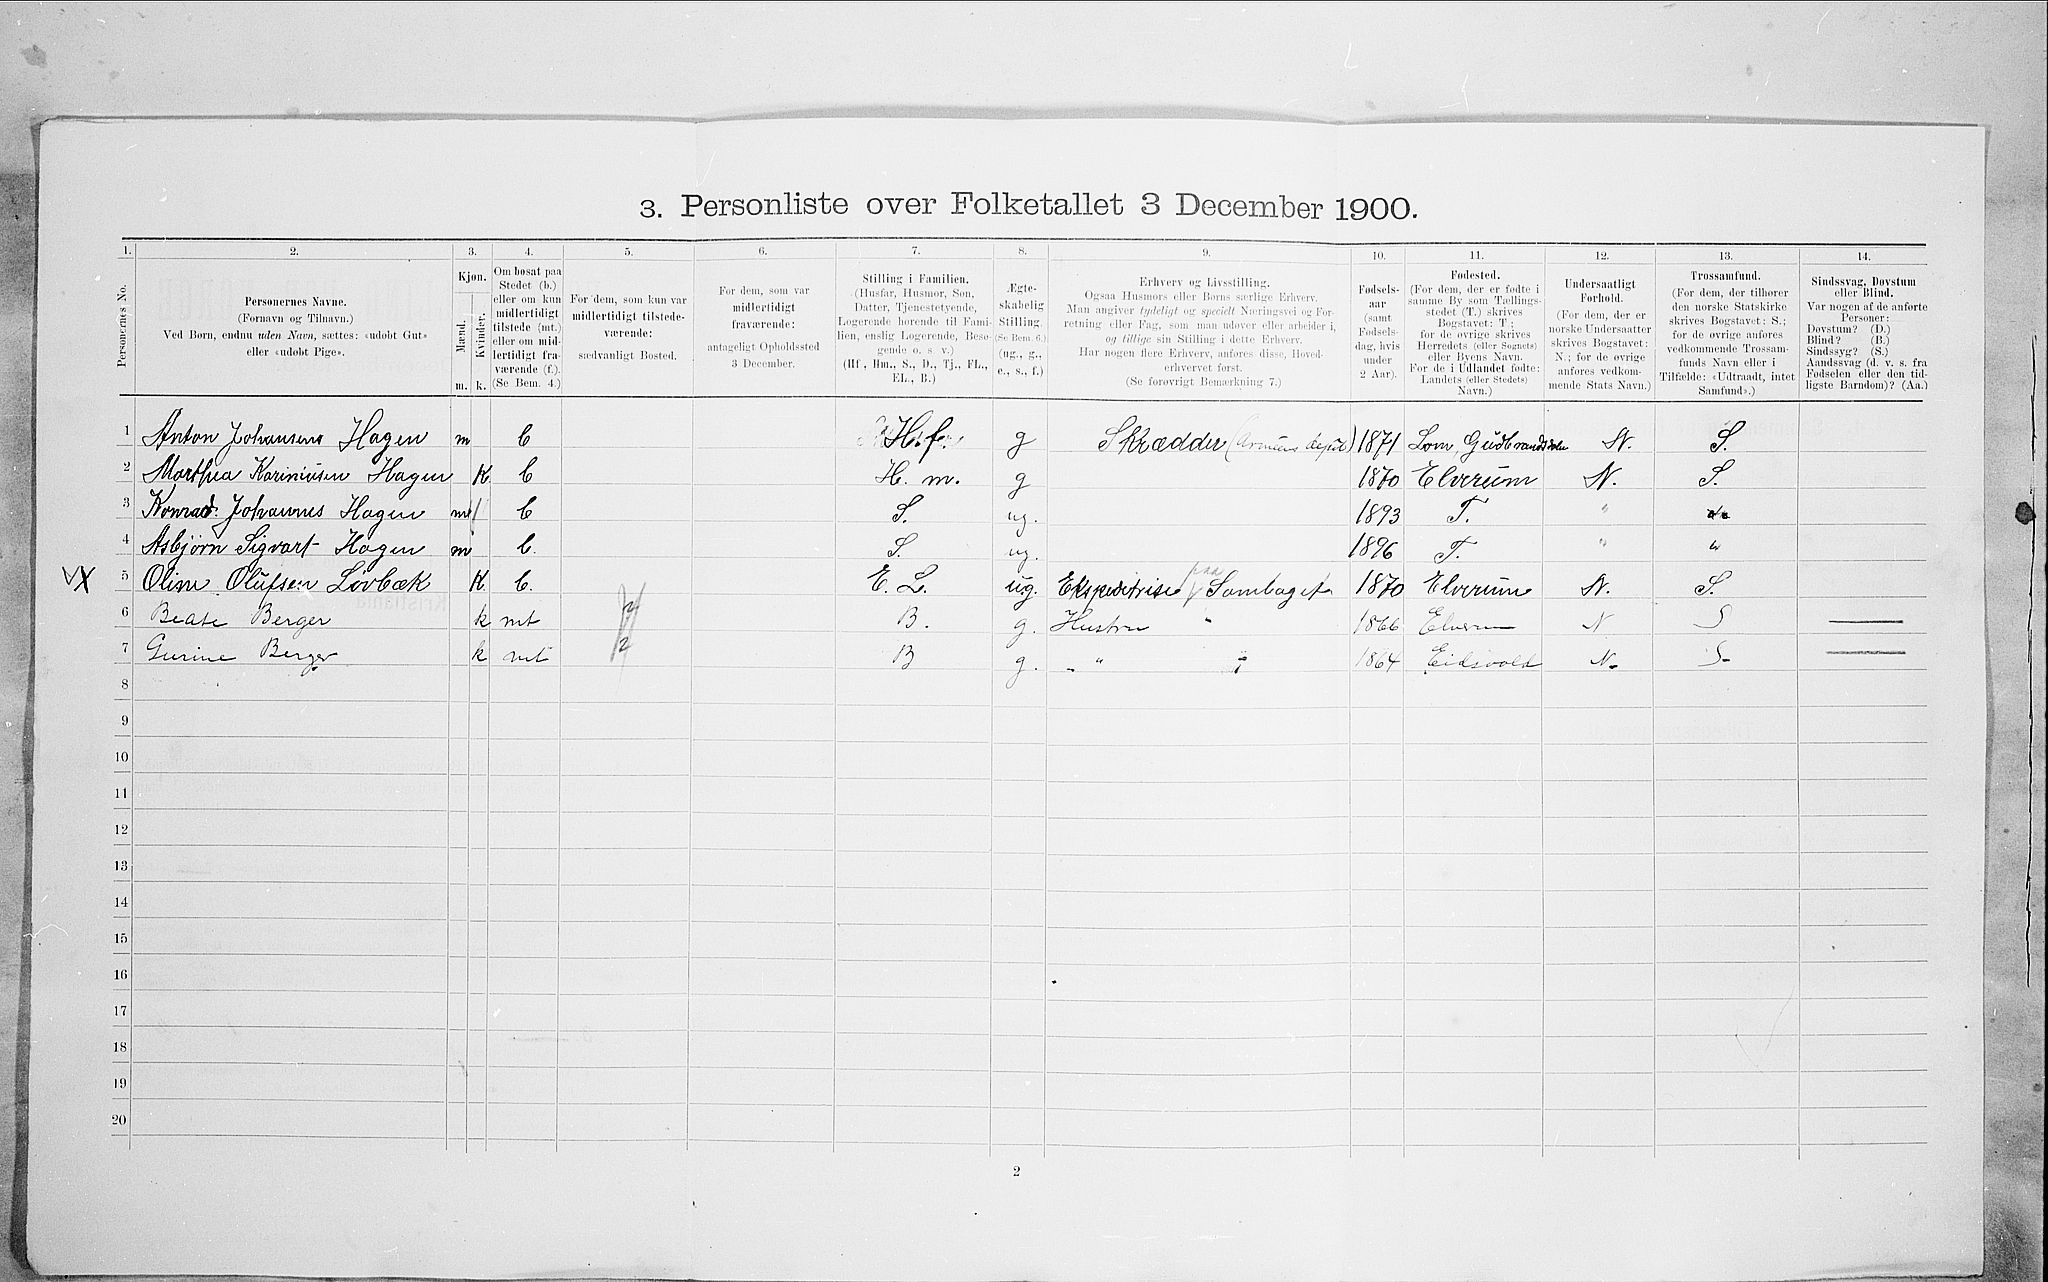 3. Personliste over Folketallet 3 December 1900.
1. 2. 3. 4. 5. 6. 7. 8. 9. 10. 11. 12. 13. 14.
Personernes No.
Personernes Navne.
(Fornavn og Tilnavn.)
Ved Børn, endnu uden Navn, sættes: «udøbt Gut»
eller «udøbt Pige».
Kjøn.
Mænd. Kvinder.
m. k.
Om bosat paa
Stedet (b.)
eller om kun
midlertidigt
tilstede (mt.)
eller om mid-
lertidigt fra-
værende (f.).
(Se Bem. 4.)
For dem, som kun var
midlertidigt tilstede-
værende:
sædvanligt Bosted.
For dem, som var
midlertidigt
fraværende:
antageligt Opholdssted
3 December.
Stilling i Familien.
(Husfar, Husmor, Søn,
Datter, Tjenestetyende,
Logerende hørende til Fami-
lien, enslig Logerende, Besø-
gende o. s. v.)
(Hf., Hm., S., D., Tj., FL.,
EL., B.)
Ægte-
skabelig
Stilling.
(Se Bem. 6.)
(ug., g.,
e., s., f.)
Erhverv og Livsstilling.
Ogsaa Husmors eller Børns særlige Erhverv.
Man angiver tydeligt og specielt Næringsvei og For-
retning eller Fag, som man udøver eller arbeider i,
og tillige sin Stilling i dette Erhverv.
Har nogen flere Erhverv, anføres disse, Hoved-
erhvervet først.
(Se forøvrigt Bemærkning 7.)
Fødsels-
aar
(samt
Fødsels-
dag, hvis
under
2 Aar).
Fødested.
(For dem, der er fødte i
samme By som Tællings-
stedet (T.) skrives
Bogstavet: T;
for de øvrige skrives
Herredets (eller Sognets)
eller Byens Navn.
For de i Udlandet fødte:
Landets (eller Stedets)
Navn.)
Undersaatligt
Forhold.
(For dem, der er
norske Undersaatter
skrives Bogstavet:
N.; for de øvrige
anføres vedkom-
mende Stats Navn.)
Trossamfund.
(For dem, der tilhører
den norske Statskirke
skrives Bogstavet: S.;
for de øvrige anføres
vedkommende Trossam-
funds Navn eller i
Tilfælde: «Udtraadt, intet
Samfund».)
Sindssvag, Døvstum
eller Blind.
Var nogen af de anførte
Personer:
Døvstum? (D.)
Blind? (B.)
Sindssyg? (S.)
Aandssvag (d. v. s. fra
Fødselen eller den tid-
ligste Barndom)? (Aa.)
1 Anton Johansens Hagen m b H. f. g Skrædder (Armeens depot) 1871 Lom, Gudbrandsdalen N. S.
2 Marthea Kariniusen Hagen K b H. m. g 1870 Elverum N. S.
3 Konrad Johannes Hagen m b S. ug. 1893 T. "
4 Asbjørn Sigvart Hagen m b. S. ug. 1896 T. " "
X 5 Oline Olufsen Løvbæk K. b. E. L. ug. Ekspeditrise paa Sambaget 1870 Elverum N. S.
6 Beate Berger k mt B. g. Hustru " 1866 Elverum N S
7 Gurine Berger k mt 2 B g. " " 1864 Eidsvold N. S.
8
9
10
11
12
13
14
15
16
17
18
19
20
2